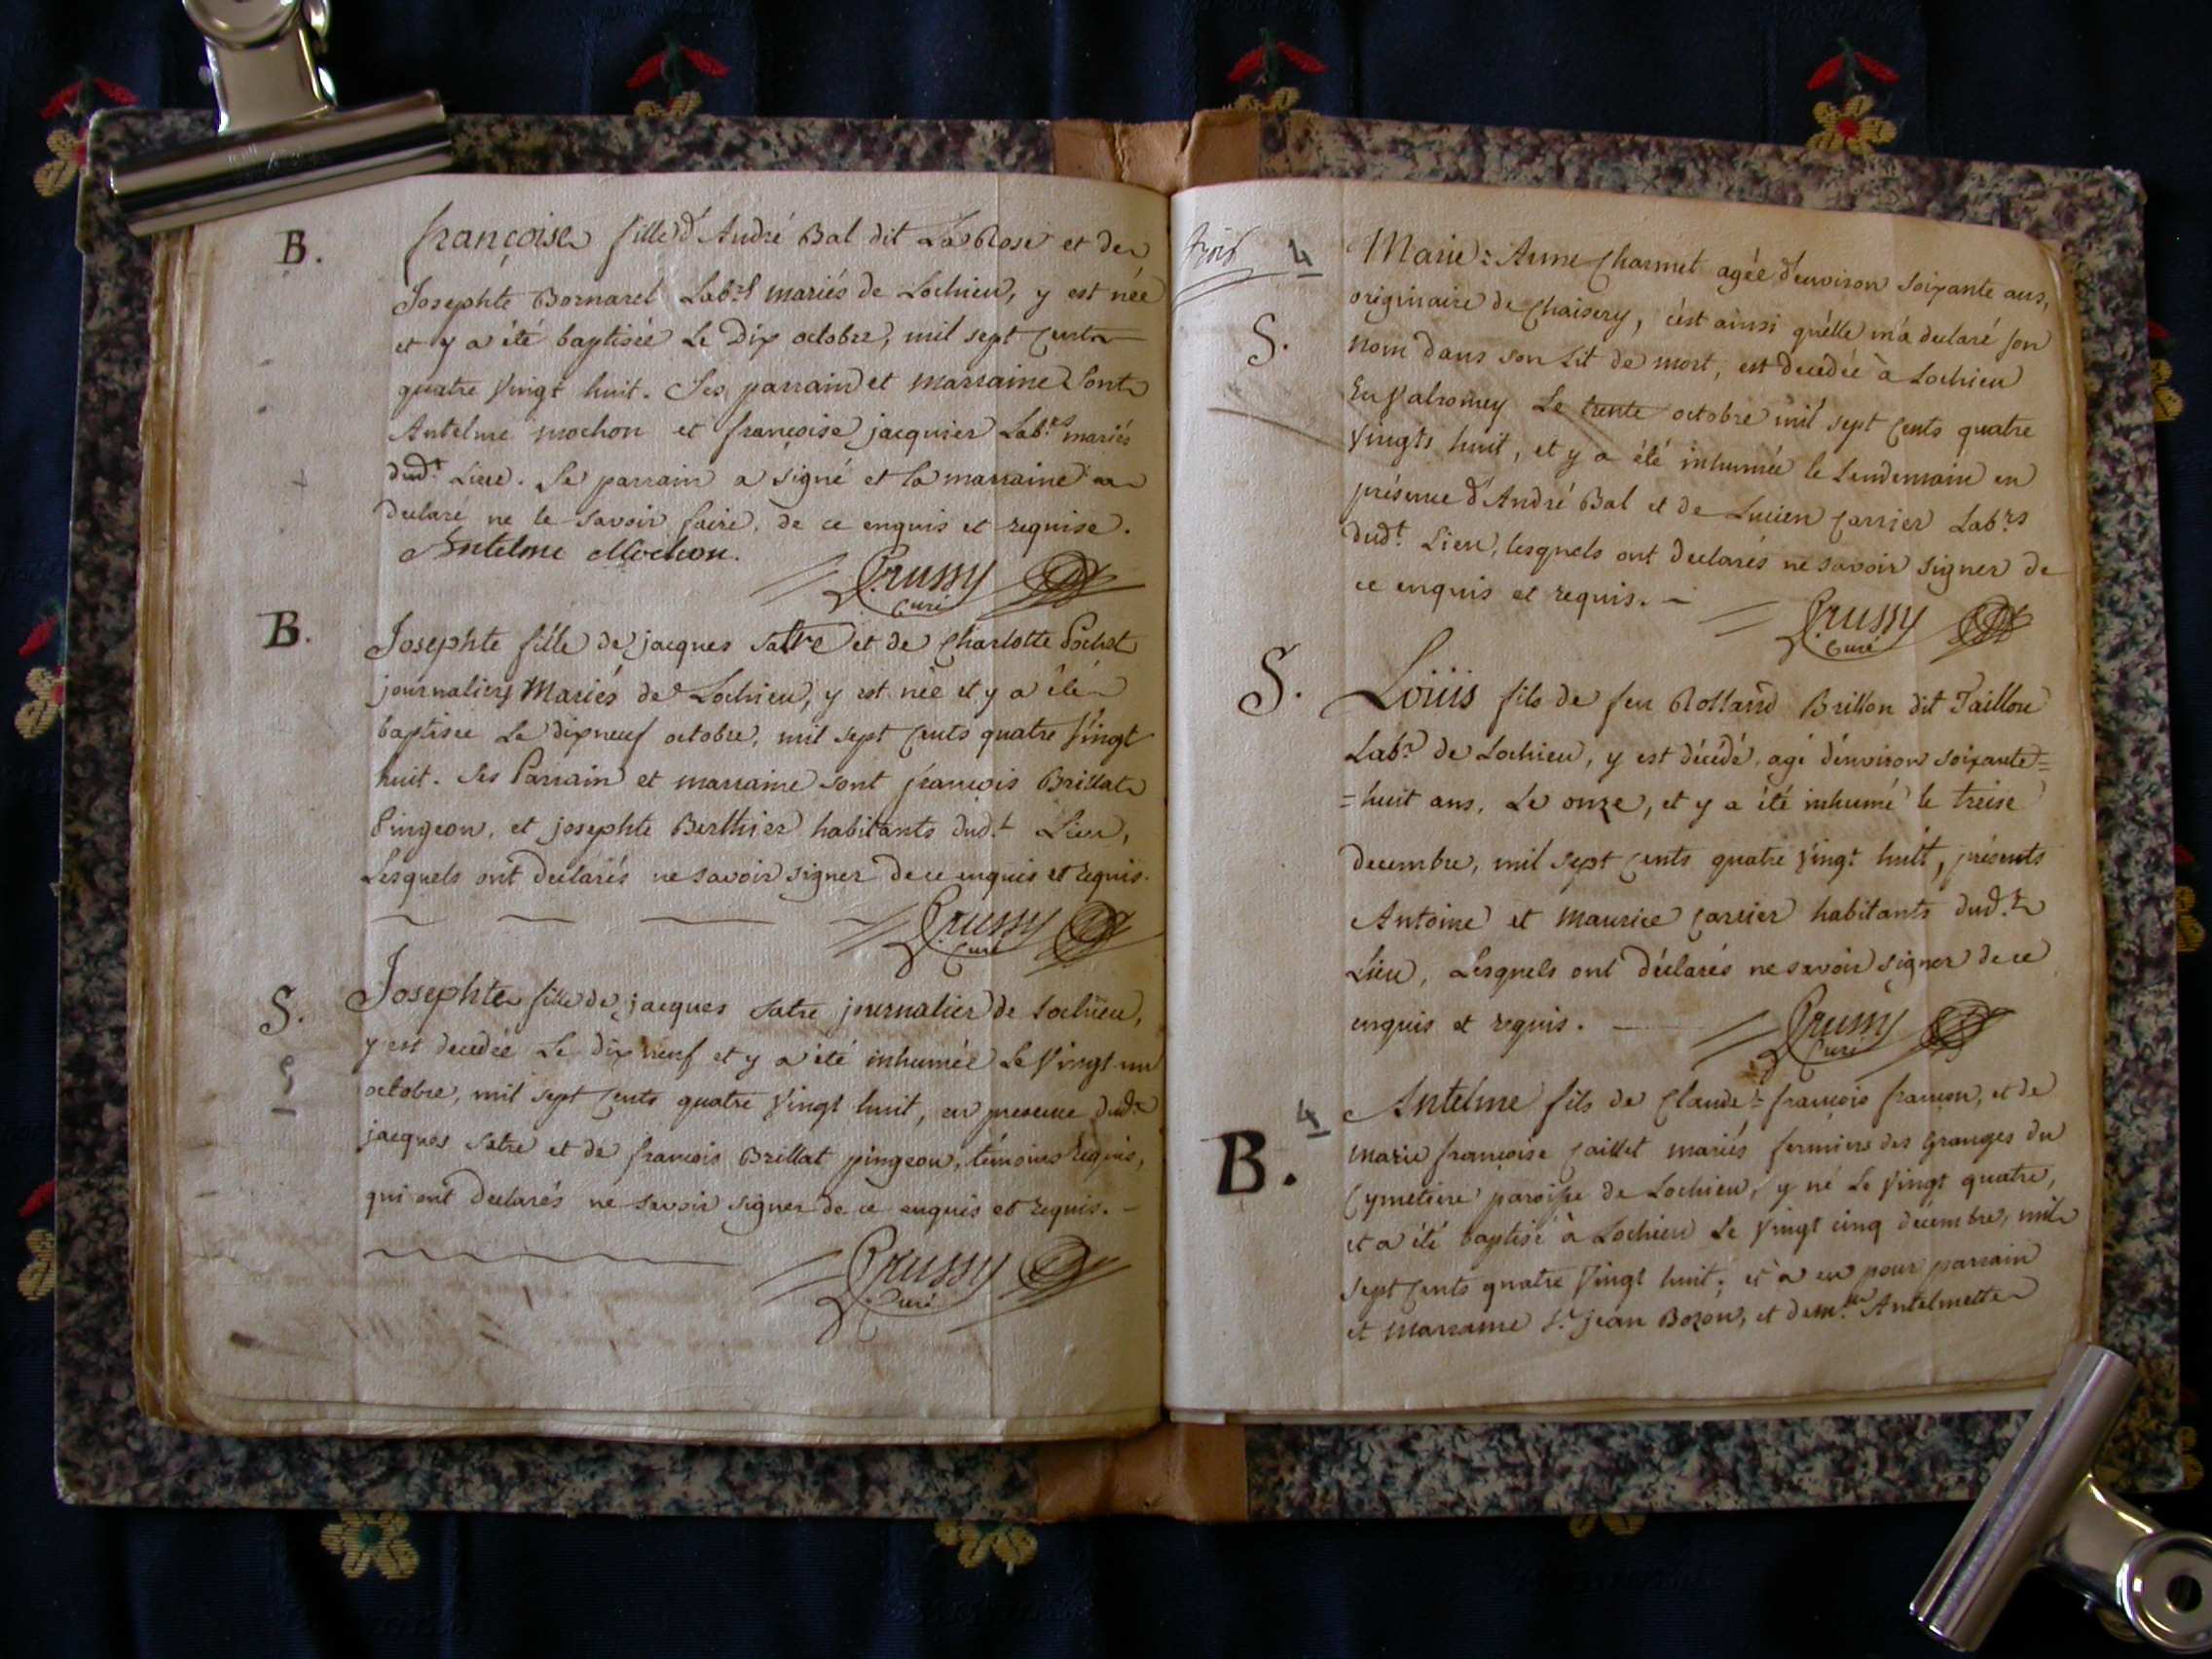 B.
françoise fille d'André Bal dit La Rose et de
Josephte Bornarel Lab.rs mariés de Lochieu, y est née
et y a été baptisée Le Dix octobre, mil sept Cents
quatre Vingt huit. Ses parrain et marraine Sont
Antelme mochon et françoise jacquier Lab.rs mariés
dud.t Lieu. Le parrain a signé et la marraine a
declaré ne le savoir faire, de ce enquis et requise.
Antelme Mochon.
Crussy
Curé
B.
Josephte fille de jacques Satre et de Charlotte Pochet
journaliers Mariés de Lochieu, y est née et y a été
baptisée Le dixneuf octobre, mil sept Cents quatre Vingt
huit. Ses Parrain et marraine sont françois Brillat
Pingeon, et josephte Berthier habitants dud.t Lieu,
Lesquels ont declarés ne savoir signer de ce enquis et requis.
Crussy
Curé
S.
Josephte fille de jacques Satre journalier de Lochieu,
y est decedée Le dix neuf et y a été inhumée Le Vingt un
octobre, mil sept Cents quatre Vingt huit, en presence dud.t
jacques Satre et de françois Brillat pingeon, témoins Requis,
qui ont declarés ne savoir signer de ce enquis et requis.
Crussy
Curé
4
S.
Marie=Anne Charmet agée d'environ soixante ans,
originaire de Chaisery, c'est ainsi qu'elle m'a declaré son
nom dans son Lit de mort, est decedée à Lochieu
En Valromey Le trente octobre mil sept Cents quatre
Vingts huit, et y a été inhumée le Lendemain en
présence d'André Bal et de Lucien Carrier Lab.rs
dud.t Lieu, lesquels ont declarés ne savoir signer de
ce enquis et requis.
Crussy
Curé
S.
Loüis fils de feu Rolland Brillon dit Taillon
Lab.r de Lochieu, y est décédé, agé d'environ soixante=
=huit ans, Le onze, et y a été inhumé le treise
decembre, mil sept Cents quatre Vingt huit, présents
Antoine et Maurice Carrier habitants dud.t
Lieu, Lesquels ont déclarés ne savoir signer de ce
enquis et requis.
Crussy
Curé
4
B.
Antelme fils de Claude=françois françon, et de
Marie françoise Caillet mariés fermiers des Granges du
Cymetiere paroisse de Lochieu, y né Le Vingt quatre,
et a été baptisé à Lochieu Le Vingt cinq décembre, mil
sept Cents quatre Vingt huit; et a eu pour parrain
et marraine S.r jean Bozon, et dem.lle Antelmette